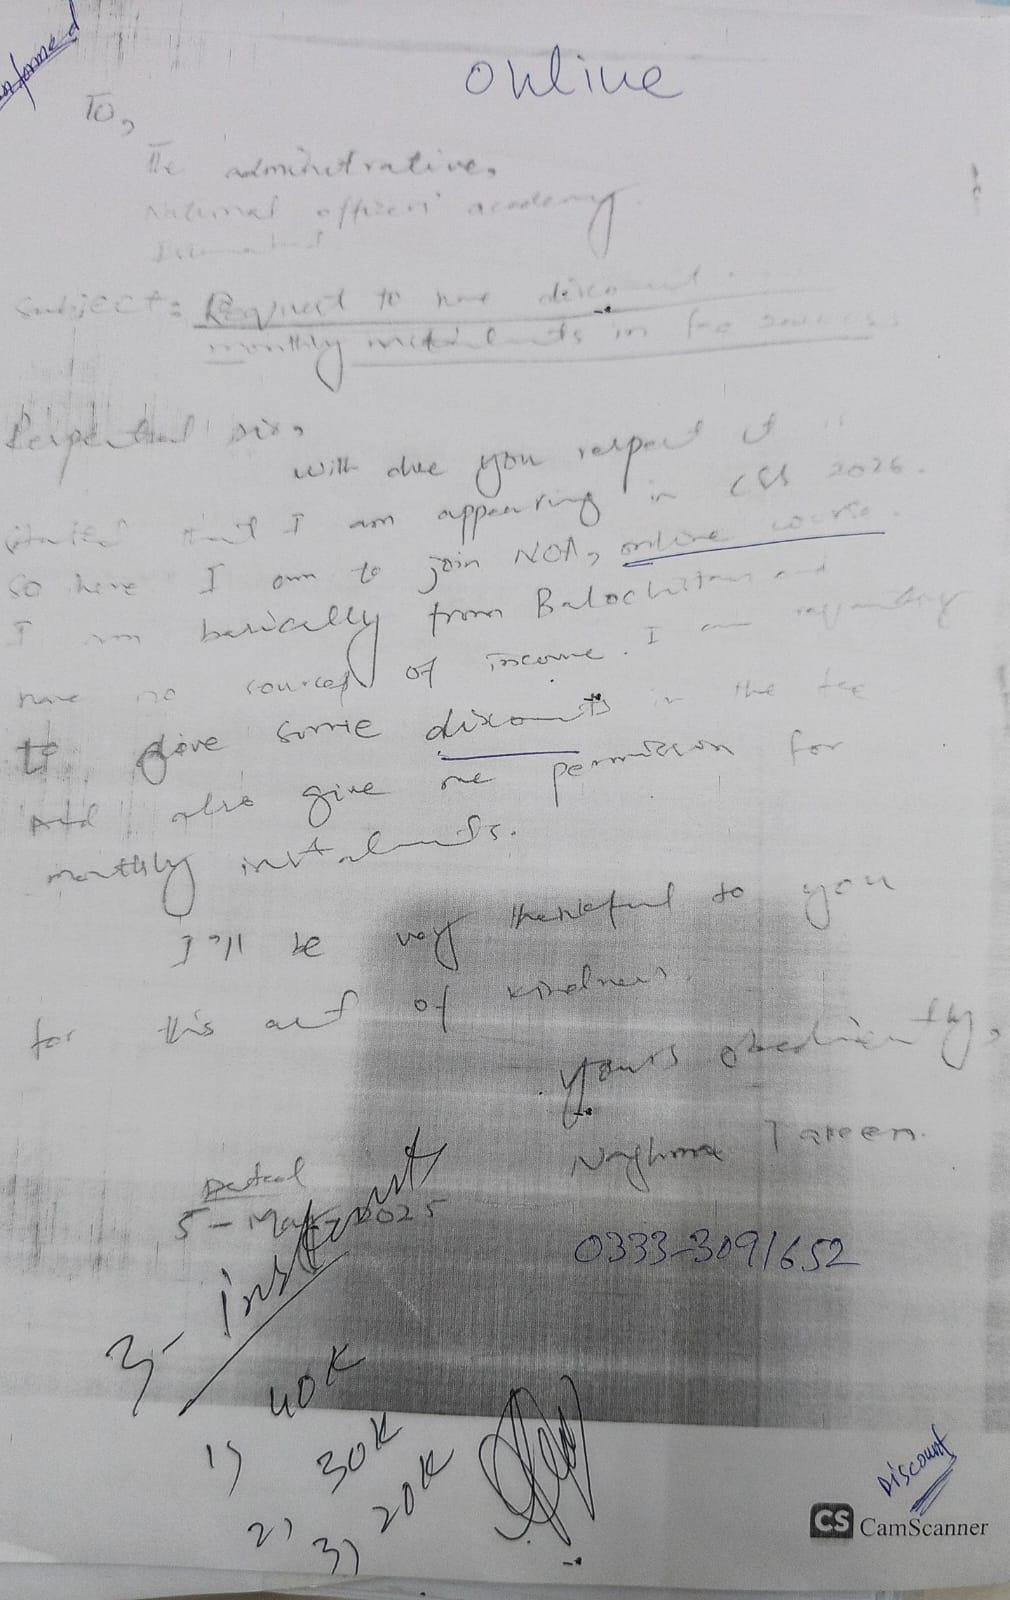 informed
online
To,
The administrative,
National officers' academy.
Subject: Request to have discount
monthly instalments in fee
sir,
with due you respect it is
stated that I am appearing in CSS 2026.
So here I am to join NOA, online course.
I am basically from Balochistan and
have no sources of income. I am requesting
to give some discounts in the fee
And also give me permission for
monthly instalments.
I'll be very thankful to you
for this act of kindness.
yours obediently,
Naghma Tareen.
Dated
5 - May - 2025
0333-3091652
3- instalment
1) 40K
2) 30K
3) 20K
Discount
CS CamScanner